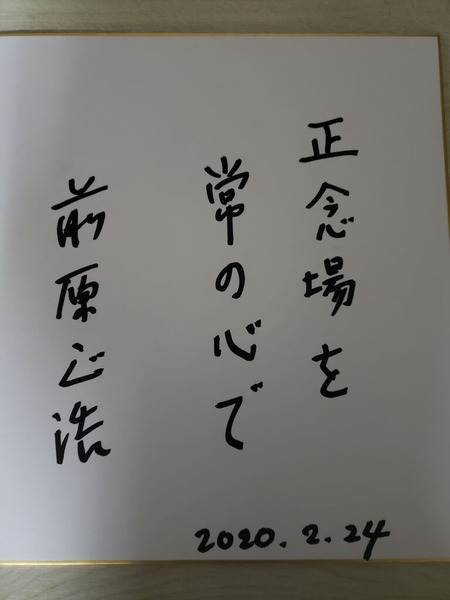 正念場を
常の心で
前原正浩
2020.2.24